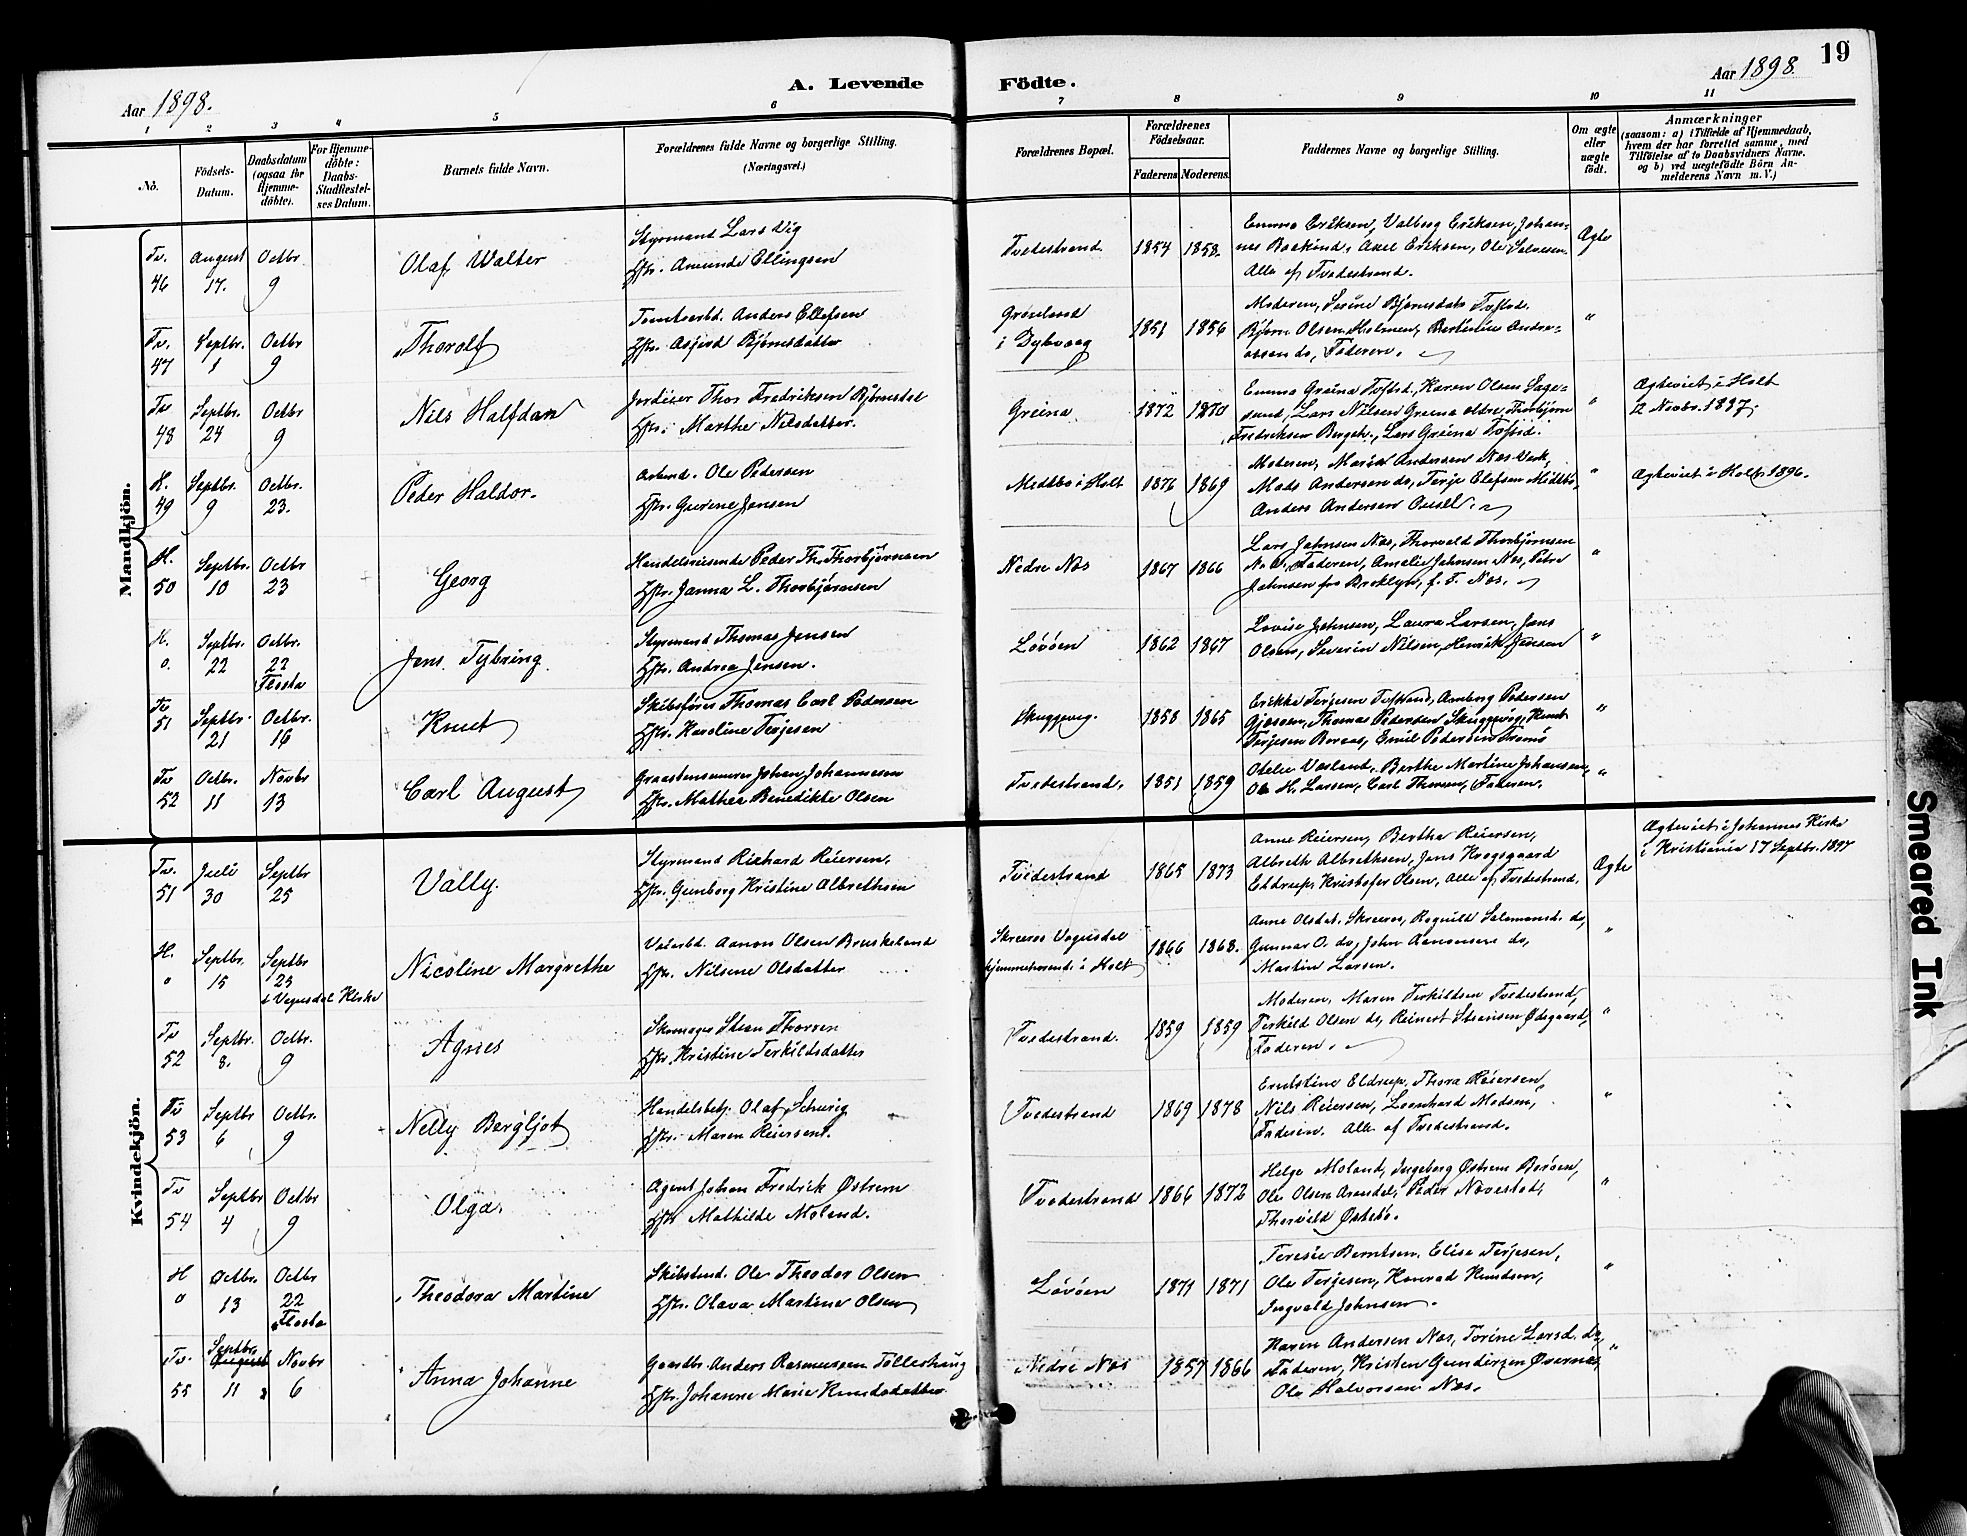 19
Aar 1898.
A. Levende Födte.
Aar 1898.
1 2 3 4 5 6 7 8 9 10 11
No.
Födsels-Datum.
Daabsdatum (ogsaa for Hjemmedöbte).
For Hjemmedöbte: Daabs-Stadfæstelses Datum.
Barnets fulde Navn.
Forældrenes fulde Navne og borgerlige Stilling. (Næringsvei.)
Forældrenes Bopæl.
Forældrenes Födselsaar.
Faderens Moderens
Faddernes Navne og borgerlige Stilling.
Om ægte eller uægte födt.
Anmærkninger
(saasom: a) i Tilfælde af Hjemmedaab, hvem der har forrettet samme, med Tilföielse af to Daabsvidners Navne, og b) ved uægtefödte Börn Anmelderens Navn m. V.)
Mandkjön.
Tv. 46 August 17. Octbr 9 Olaf Walter
Styrmand Lars Vig
Hstr. Amunde Ellingsen
Tvedestrand 1854 1858.
Emma Eriksen, Valborg Eriksen, Johan-
Axel Eriksen, Ole
Alle af Tvedestrand.
Ægte
Tv. 47 Septbr. 1 Octbr 9 Thorolf
Tomtearbd. Anders Ellefsen
Hstr. Asjerd Bjørnsdatter
Grønland i Dybvaag 1851 1856
Moderen, Serine Bjørnsdatr
Bjørn Olsen Holmen, Bertinius Andre-
assen do, Faderen.
"
Tv 48 Septbr. 24 Octbr 9 Nils Halfdan
Jordeier Thor Fredriksen
Hstr. Marthe Nilsdatter.
Greina 1872 1870
Emma Greina Karen Olsen Sage-
sund, Lars Nilsen Greina Thorbjørn
Fredriksen Lars Greina
"
Ægteviet i Holt
12 Novbr. 1897.
H. 49 Septbr. 9 Octbr. 23. Peder Haldor.
Arbmd. Ole Pedersen
Hstr. Gurine Jensen
Medtbø i Holt 1876 1869
Moderen, Maria Andersen Næs Værk,
Mads Andersen do, Terje Elefsen
Anders Andersen
"
Ægteviet i Holt 1896.
H. 50 Septbr. 10 Octbr 23 Georg
Handelsreisende Peder Th. Thorbjørnsen
Hstr. Janna L. Thorbjørnsen
Nedre Næs 1867 1866
Lars Johnsen Næs, Thorvald Thorbjørnsen
N. V. Faderen, Amalie Johnsen Næs, Petra
Johnsen fra Broklyn, f. T. Næs.
"
H. o. Septbr. 22 Octbr. 22 Flosta Jens Tybring.
Styrmand Thomas Jensen
Hstr. Andrea Jensen.
Løvøen 1862 1867
Lovise Johnsen, Laura Larsen, Jens
Olsen, Severin Nilsen, Henrik Jensen
"
Tv 51 Septbr. 21 Octbr. 16 Knut
Skibsfører Thomas Carl Pedersen
Hstr. Karoline Terjesen
Skuggevig. 1858 1865
Erikke Terjesen Amborg Pedersen
Thomas Pedersen Skuggevig, Knut
Terjesen Boraas, Emil Pedersen Tromø
"
Tv 52 Octbr. 11 Novbr 13 Carl August
Johan Johannesen
Hstr. Mathea Benedikte Olsen
Tvedestrand. 1851 1859
Otelie Vasland, Berthe Martine Johansen,
Ole H. Larsen, Carl Thoresen, Faderen.
"
Kvindekjön.
Tv. 51 Juli 30 Septbr 25 Vally.
Styrmand Richard Reiersen.
Hstr. Gunborg Kristine Albrethsen
Tvedestrand 1865 1873
Anne Reiersen, Bertha Reiersen,
Albreth Albrethsen, Jens Krogsgaard
Eldrup, Kristofer Olsen, Alle af Tvedestrand.
Ægte
Ægteviet i Johannes Kirke
i Kristiania 17 Septbr. 1897
H. o Septbr. 15 Septbr 25 i Vegusdal Kirke Nicoline Margrethe
Veiarbd. Aanon Olsen Bruskeland
Hstr. Nilsine Olsdatter
Skreros Vegusdal
hjemmehørend. i Holt 1866 1868.
Anne Olsdat. Skreros, Ragnild Salamonsd. do,
Gunnar O. do, John Aanonsen do,
Martin Larsen.
"
Tv 52 Septbr. 8. Octbr. 9 Agnes
Skomager Stian Thorsen
Hstr. Kristine Terkildsdatter
Tvedestrand. 1859 1859
Moderen, Maren Terkildsen Tvedestrand,
Terkild Olsen do, Reinert Stiansen Ødegaard,
Faderen.
"
Tv 53 Septbr 6 Octbr. 9 Nelly Bergljot
Handelsbetj. Olaf Schwig
Hstr. Maren Reiersen.
Tvedestrand 1869 1878
Ernstine Eldrup, Thora Reiersen,
Nils Reiersen, Leonhard Madsen,
Faderen. Alle af Tvedestrand.
"
Tv 54 Septbr 4 Octbr 9 Olga.
Agent Johan Fredrik Østrem
Hstr Mathilde Moland.
Tvedestrand 1866 1872
Helge Moland, Ingeborg Østrem Borøen,
Ole Olsen Arendal, Peder Navestad,
Thorvald Østebø.
"
H o Octbr. 13 Octbr 22 Flosta Theodora Martine
Skibstmd. Ole Theodor Olsen
Hstr. Olava Martine Olsen
Løvøen 1871 1871
Teresie Berntsen, Elise Terjesen,
Ole Terjesen, Konrad Knudsen,
Ingvald Johnsen.
"
Tv. 55 Septbr. August 11 Novbr 6 Anna Johanne
Gaardbr. Anders Rasmussen Tollershaug
Hstr. Johanne Marie Knudsdatter
Nedre Næs 1857 1866
Karen Andersen Næs, Torine Larsd. do,
Faderen, Kristen Gundersen Øvernæs,
Ole Halvorsen Næs.
"
Smeared Ink